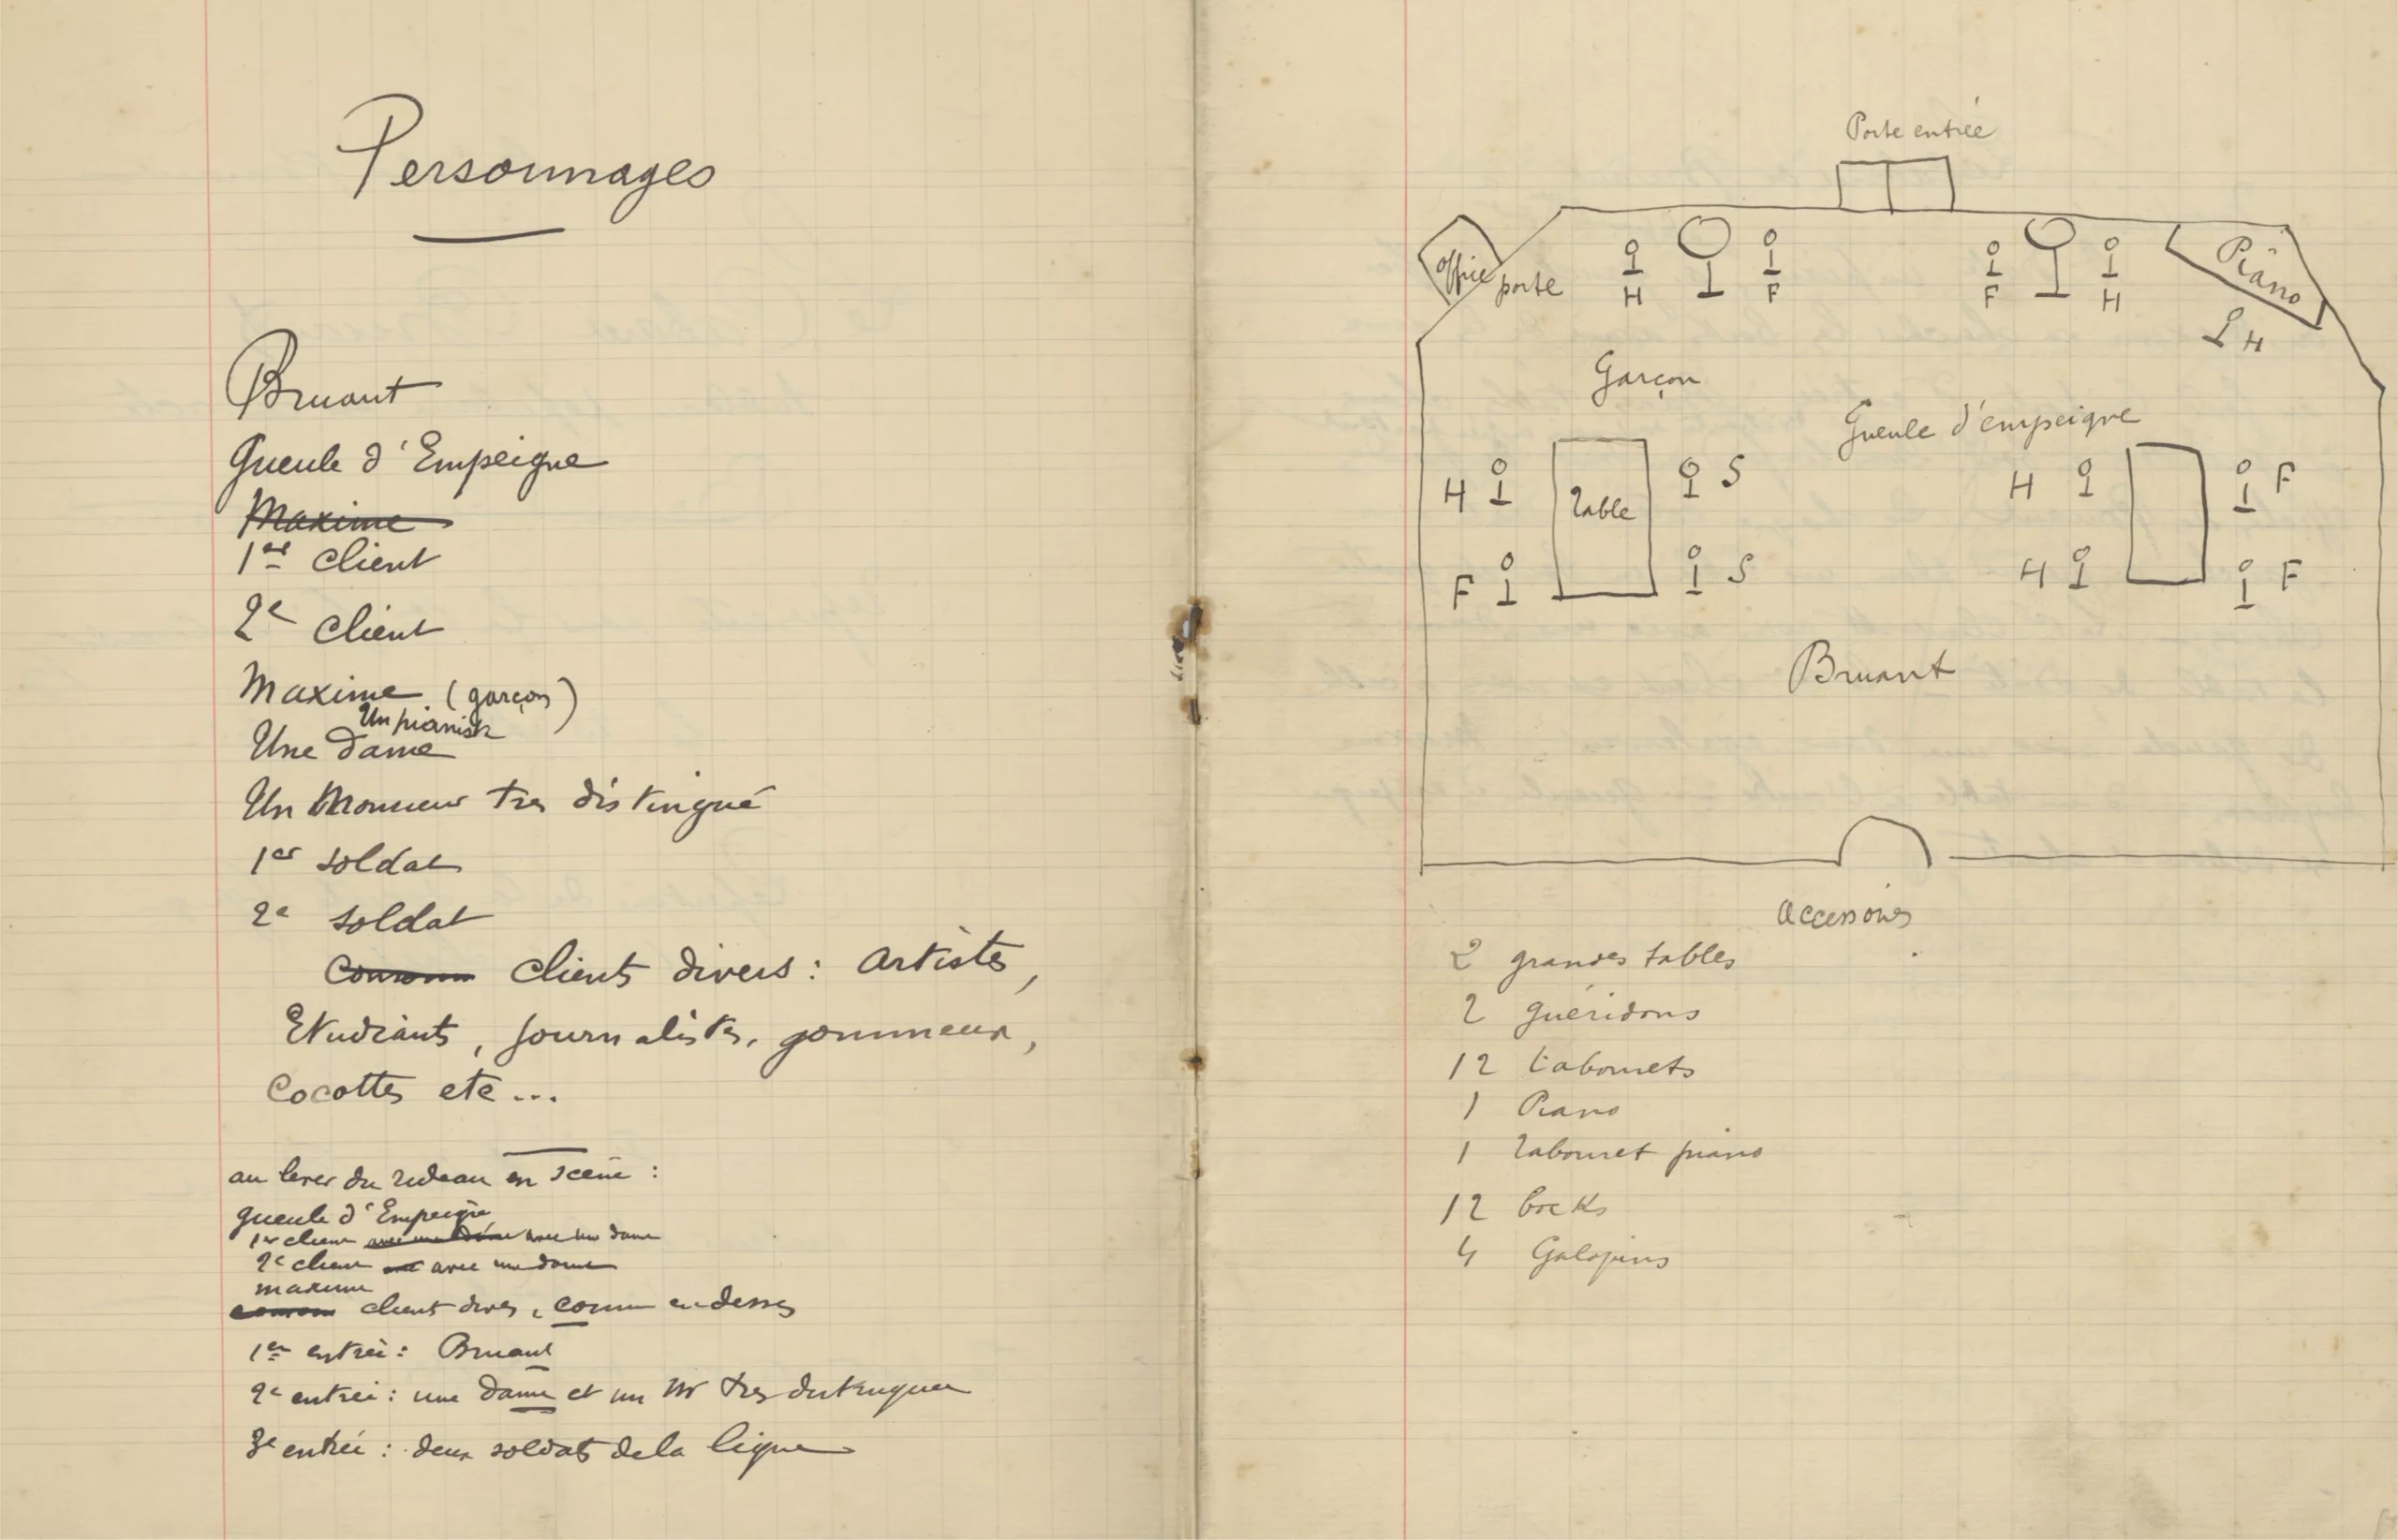 Personnages
Bruant
Gueule d'Empeigne
Maxime
1er client
2e client
Maxime (garçon)
Un pianiste
Une dame
Un Monsieur tres distingué
1er soldat
2e soldat
clients divers : artistes,
Etudiants, journalistes, gommeux,
Cocottes etc...
au lever du rideau en scène :
gueule d'Empeigne
1er client avec une dame avec une dame
2e client avec une dame
maxime
client divers, comme en dessus
1er entrée : Bruant
2e entrée : une dame et un Mr tres distingué
3e entrée : deux soldats de la ligne
Porte entrée
Office porte
H F F H Piano
H
Garçon
Gueule d'empeigne
H Table S H F
F S H F
Bruant
accessoires
2 grandes tables
2 guéridons
12 tabourets
1 Piano
1 Tabouret piano
12 bocks
4 Galopins